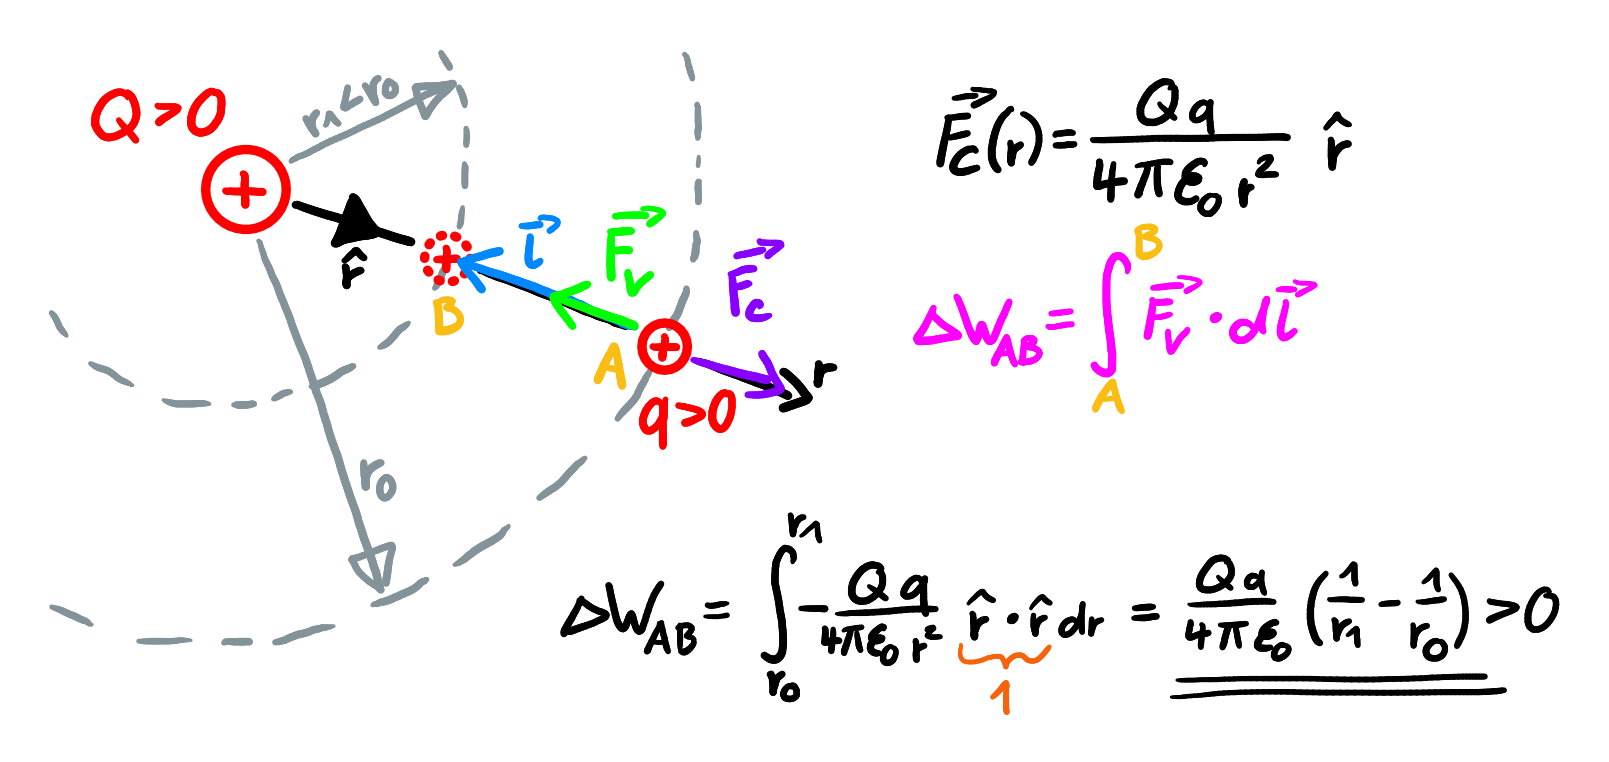 Q>0
r₁<r₀
+
r̂
+
B
l⃗
F⃗ᵥ
F⃗c
A
+
q>0
r
r₀
F⃗c(r) = Qq / 4πε₀r² r̂
ΔW_AB = ∫_A^B F⃗ᵥ · dl⃗
ΔW_AB = ∫_r₀^r₁ − Qq / 4πε₀r² r̂ · r̂ dr = Qq / 4πε₀ (1/r₁ − 1/r₀) > 0
1